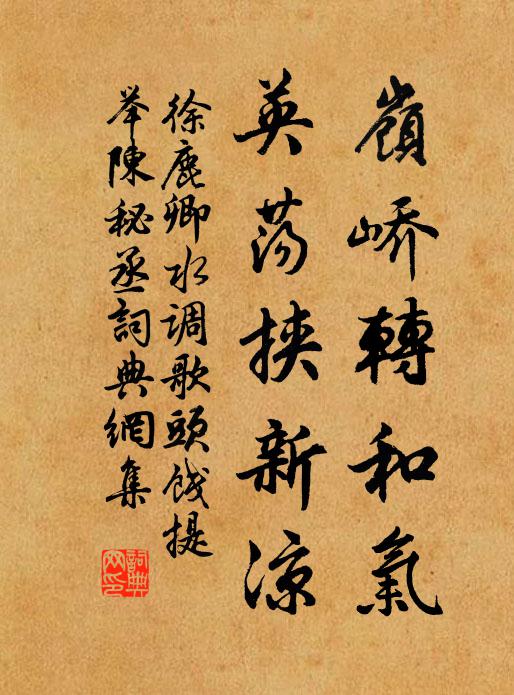 嶺嶠轉和氣
英蕩挾新涼
徐鹿卿水调歌頭餞提
举陳秘丞詞典網集
詞典
網印